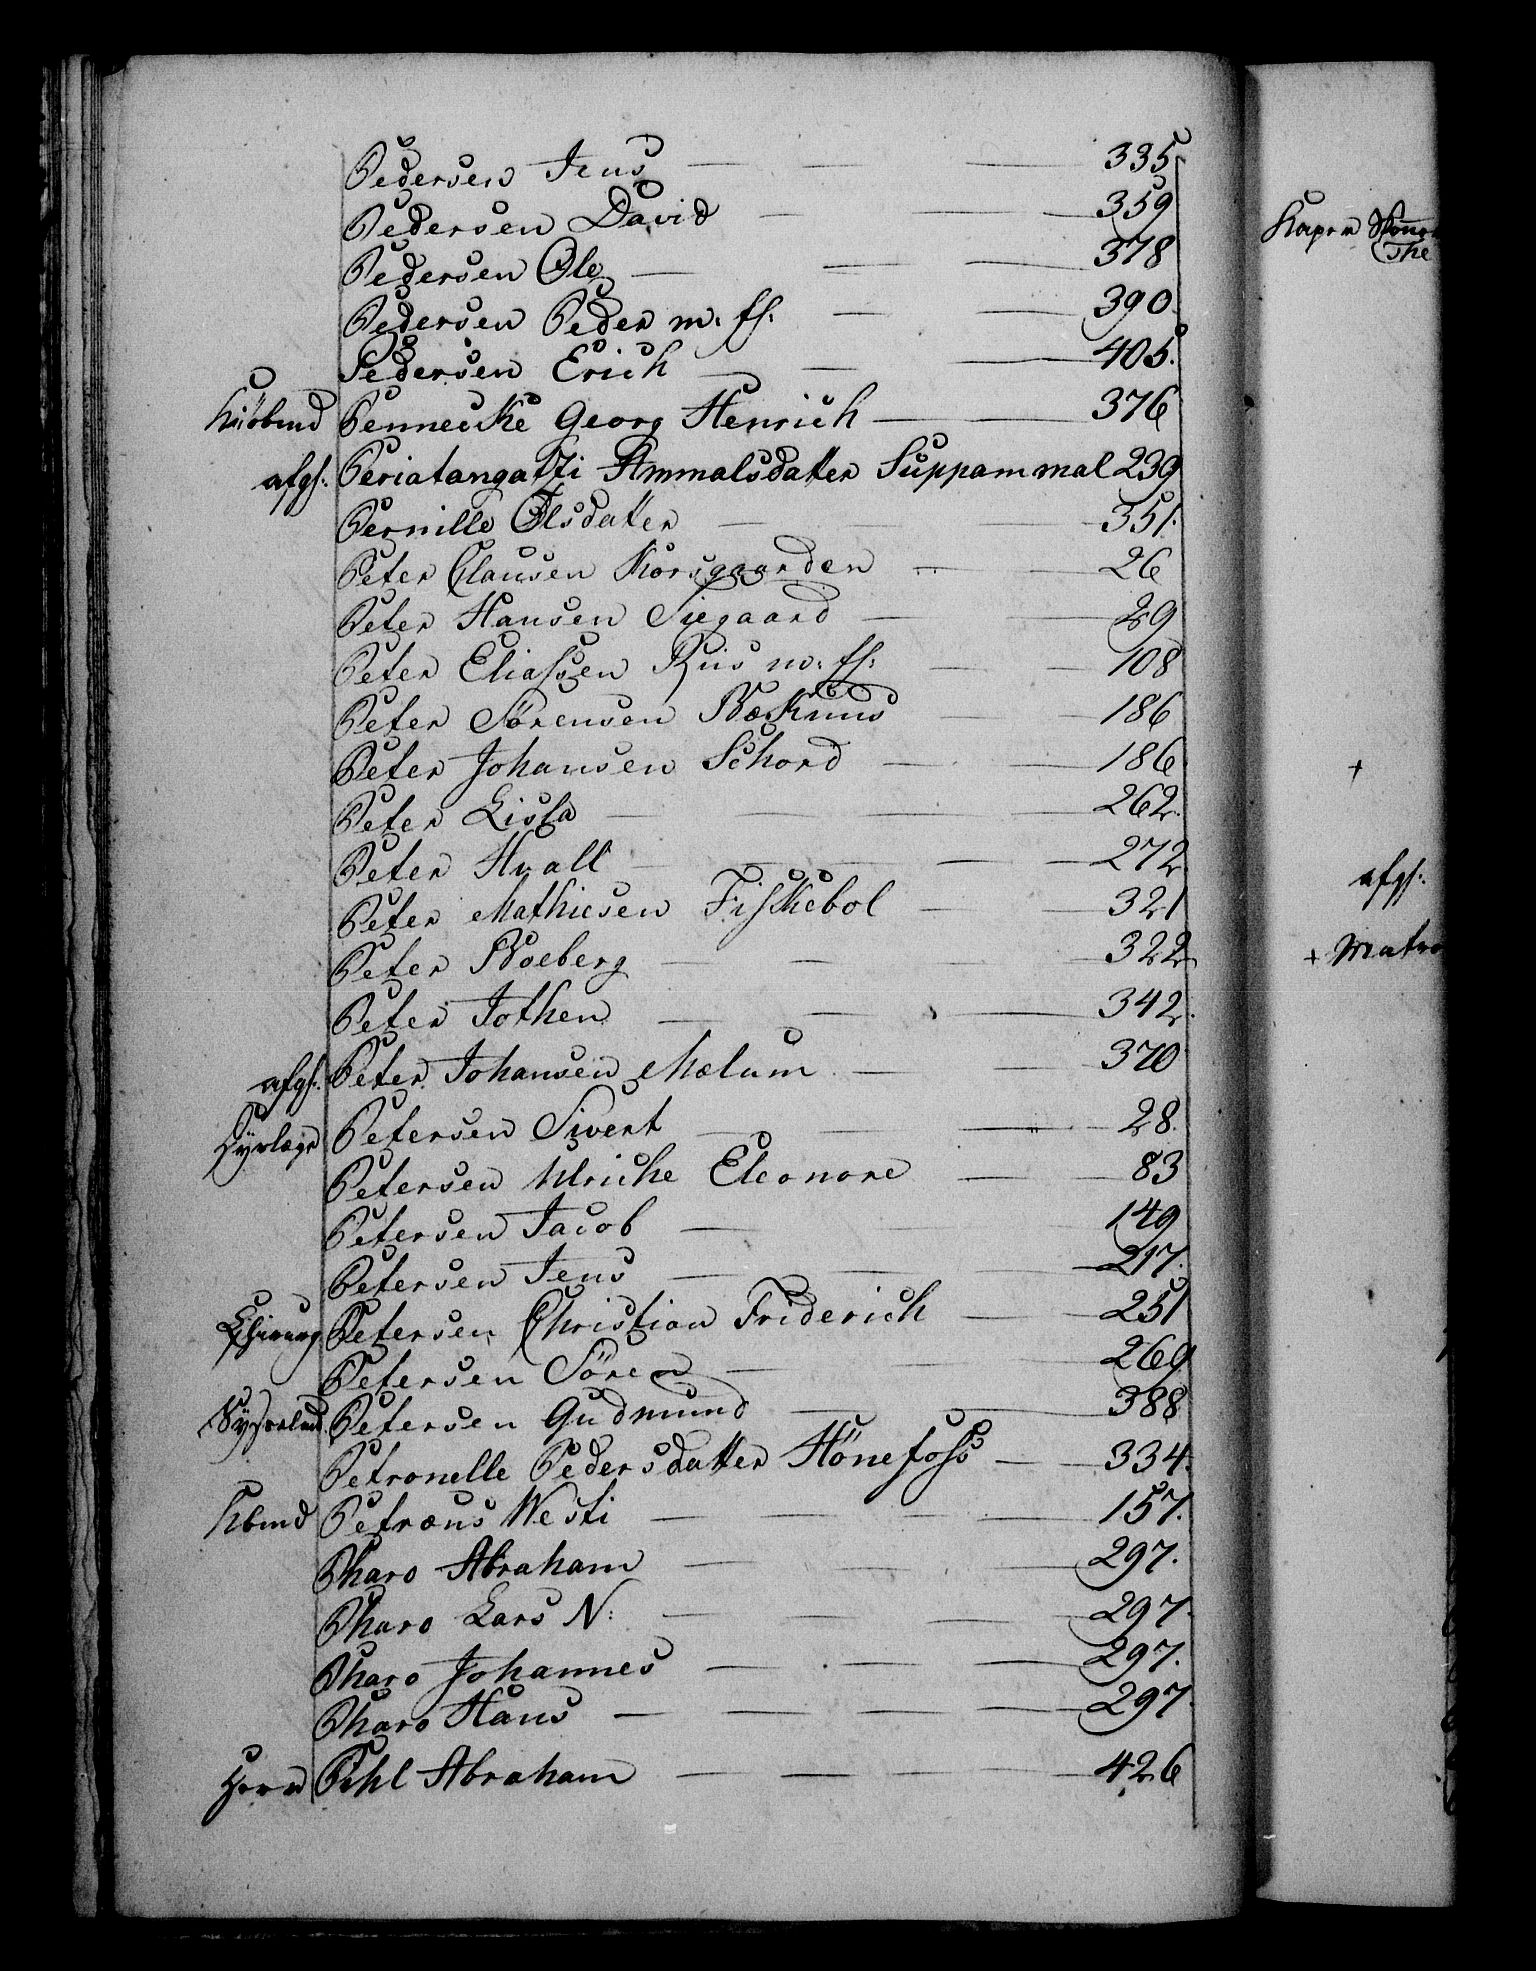 Pedersen Jens — — — 335
Pedersen David — — — 359
Pedersen Ole — — — 378
Pedersen Peder m. fl: — — 390
Pedersen Erich — — — 405.
Kiöbmd Pennecke Georg Henrich — — 376
afgl: Periatangatti Ammalsdatter Suppammal 239
Pernille Olsdatter — — — 351.
Peter Clausen Korsgaarden — — 26
Peter Hansen Siegaard — — 29
Peter Eliassen Riis m. fl: — — 108
Peter Sörensen — — 186
Peter Johansen Schord — — 186
Peter Lisla — — — 262.
Peter Hvall — — — 272
Peter Mathiesen Fiskebol — — 321
Peter Boeberg — — — 322
Peter Jothen — — — 342.
afgl: Peter Johansen Mælum — — 370
Dyrlæge Petersen Sivert — — — 28.
Petersen Ulriche Eleonore — — 83
Petersen Jacob — — — 149
Petersen Jens — — — 217.
Chirurg Petersen Christian Friderich — — 251
Petersen Sören — — — 269
Petersen Gudmund — — — 388
Petronelle Pedersdatter Hönefoss — — 334.
Kbmd Petræus Westi — — — 157.
Pharo Abraham — — — 297.
Pharo Lars N: — — — 297.
Pharo Johannes — — — 297.
Pharo Hans — — — 297.
Herr Pihl Abraham — — — 426
+
afgl:
+ Matro